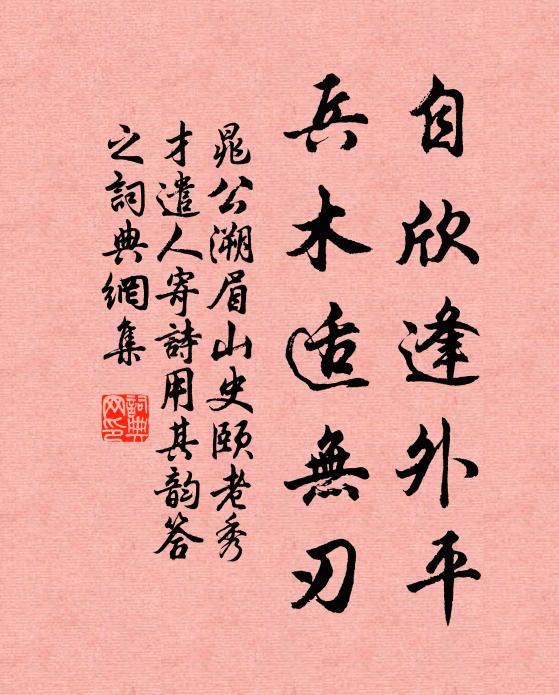 自欣逢外平
兵木适無刃
晁公溯眉山史頤老秀
才遣人寄詩用其韵答
之詞典網集
詞典
网印